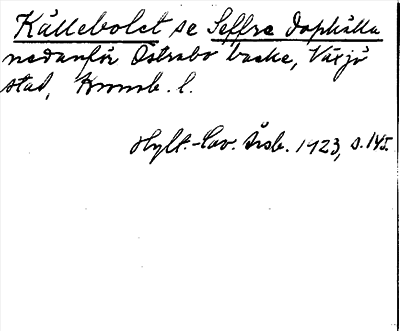 Källebolet se Seffre dopkälla
nedanför Östrabo backe, Växjö
stad, Kronob. l.
Hylt.-Cav. Årsb. 1923, s. 145.